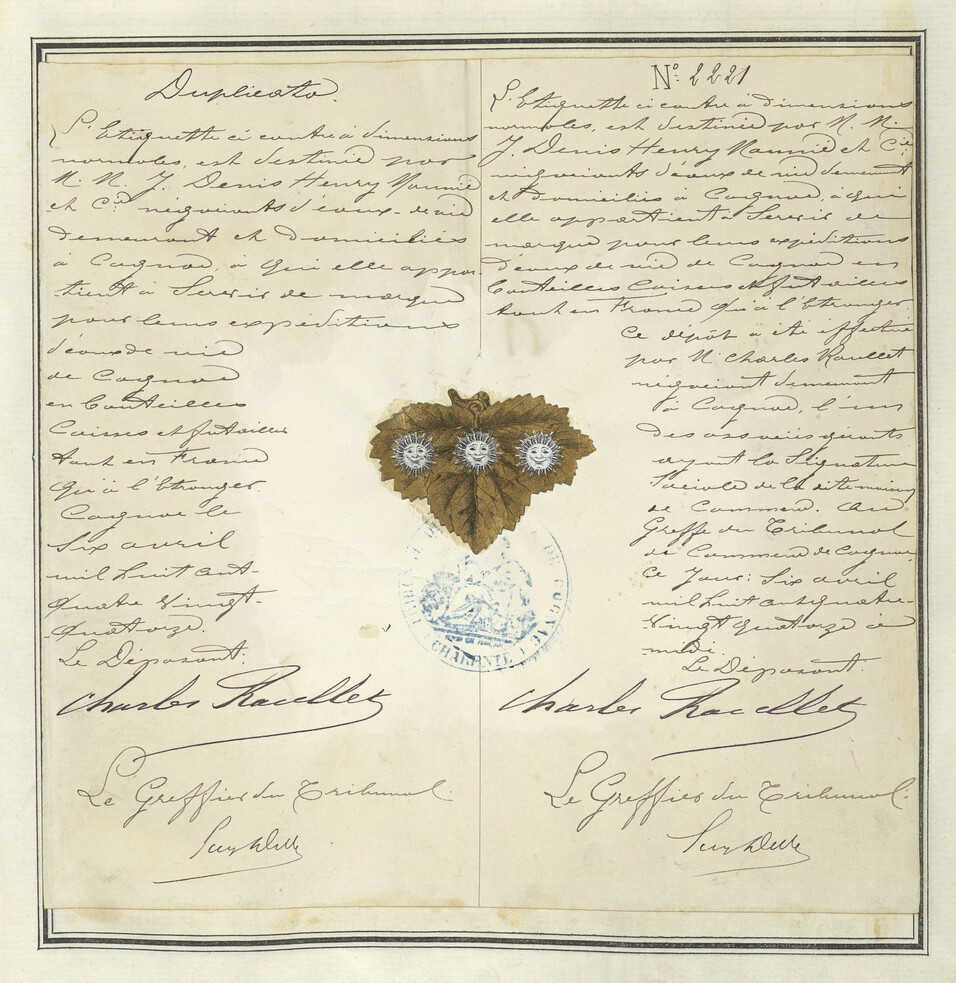 Duplicata.
L'Etiquette ci contre à dimensions
normales, est destinée par
M. M. J. Denis Henry Mounié
et Cie négociants d'eaux-de vie
demeurant et domiciliés
à Cognac, à qui elle appar-
tient à Servir de marque
pour leurs expéditions
d'eaux de vie
de Cognac
en Bouteilles
Caisses et futailles
tant en France
qu'à l'Etranger.
Cognac le
Six avril
mil huit cent-
quatre Vingt-
quatorze.
Le Déposant:
Charles Roullet
Le Greffier du Tribunal.
No: 2221
L'Etiquette ci contre à dimensions
normales, est destinée par M. M.
J. Denis Henry Mounié et Cie:
négociants d'eaux de vie demeurant
et domiciliés à Cognac, à qui
elle appartient à Servir de
marque pour leurs expéditions
d'eaux de vie de Cognac en
Bouteilles Caisses et futailles
tant en France qu'à l'Etranger
Ce dépôt a été effectué
par M. Charles Roullet
négociant demeurant
à Cognac, l'un
des associés gérants
ayant la Signature
Sociale de la dite maison
de Commerce. Au
Greffe du Tribunal
de Commerce de Cognac
Ce Jour: Six avril
mil huit cent quatre-
Vingt quatorze à
midi.
Le Déposant:
Charles Roullet
Le Greffier du Tribunal:
DE COGNAC
CHARENTE